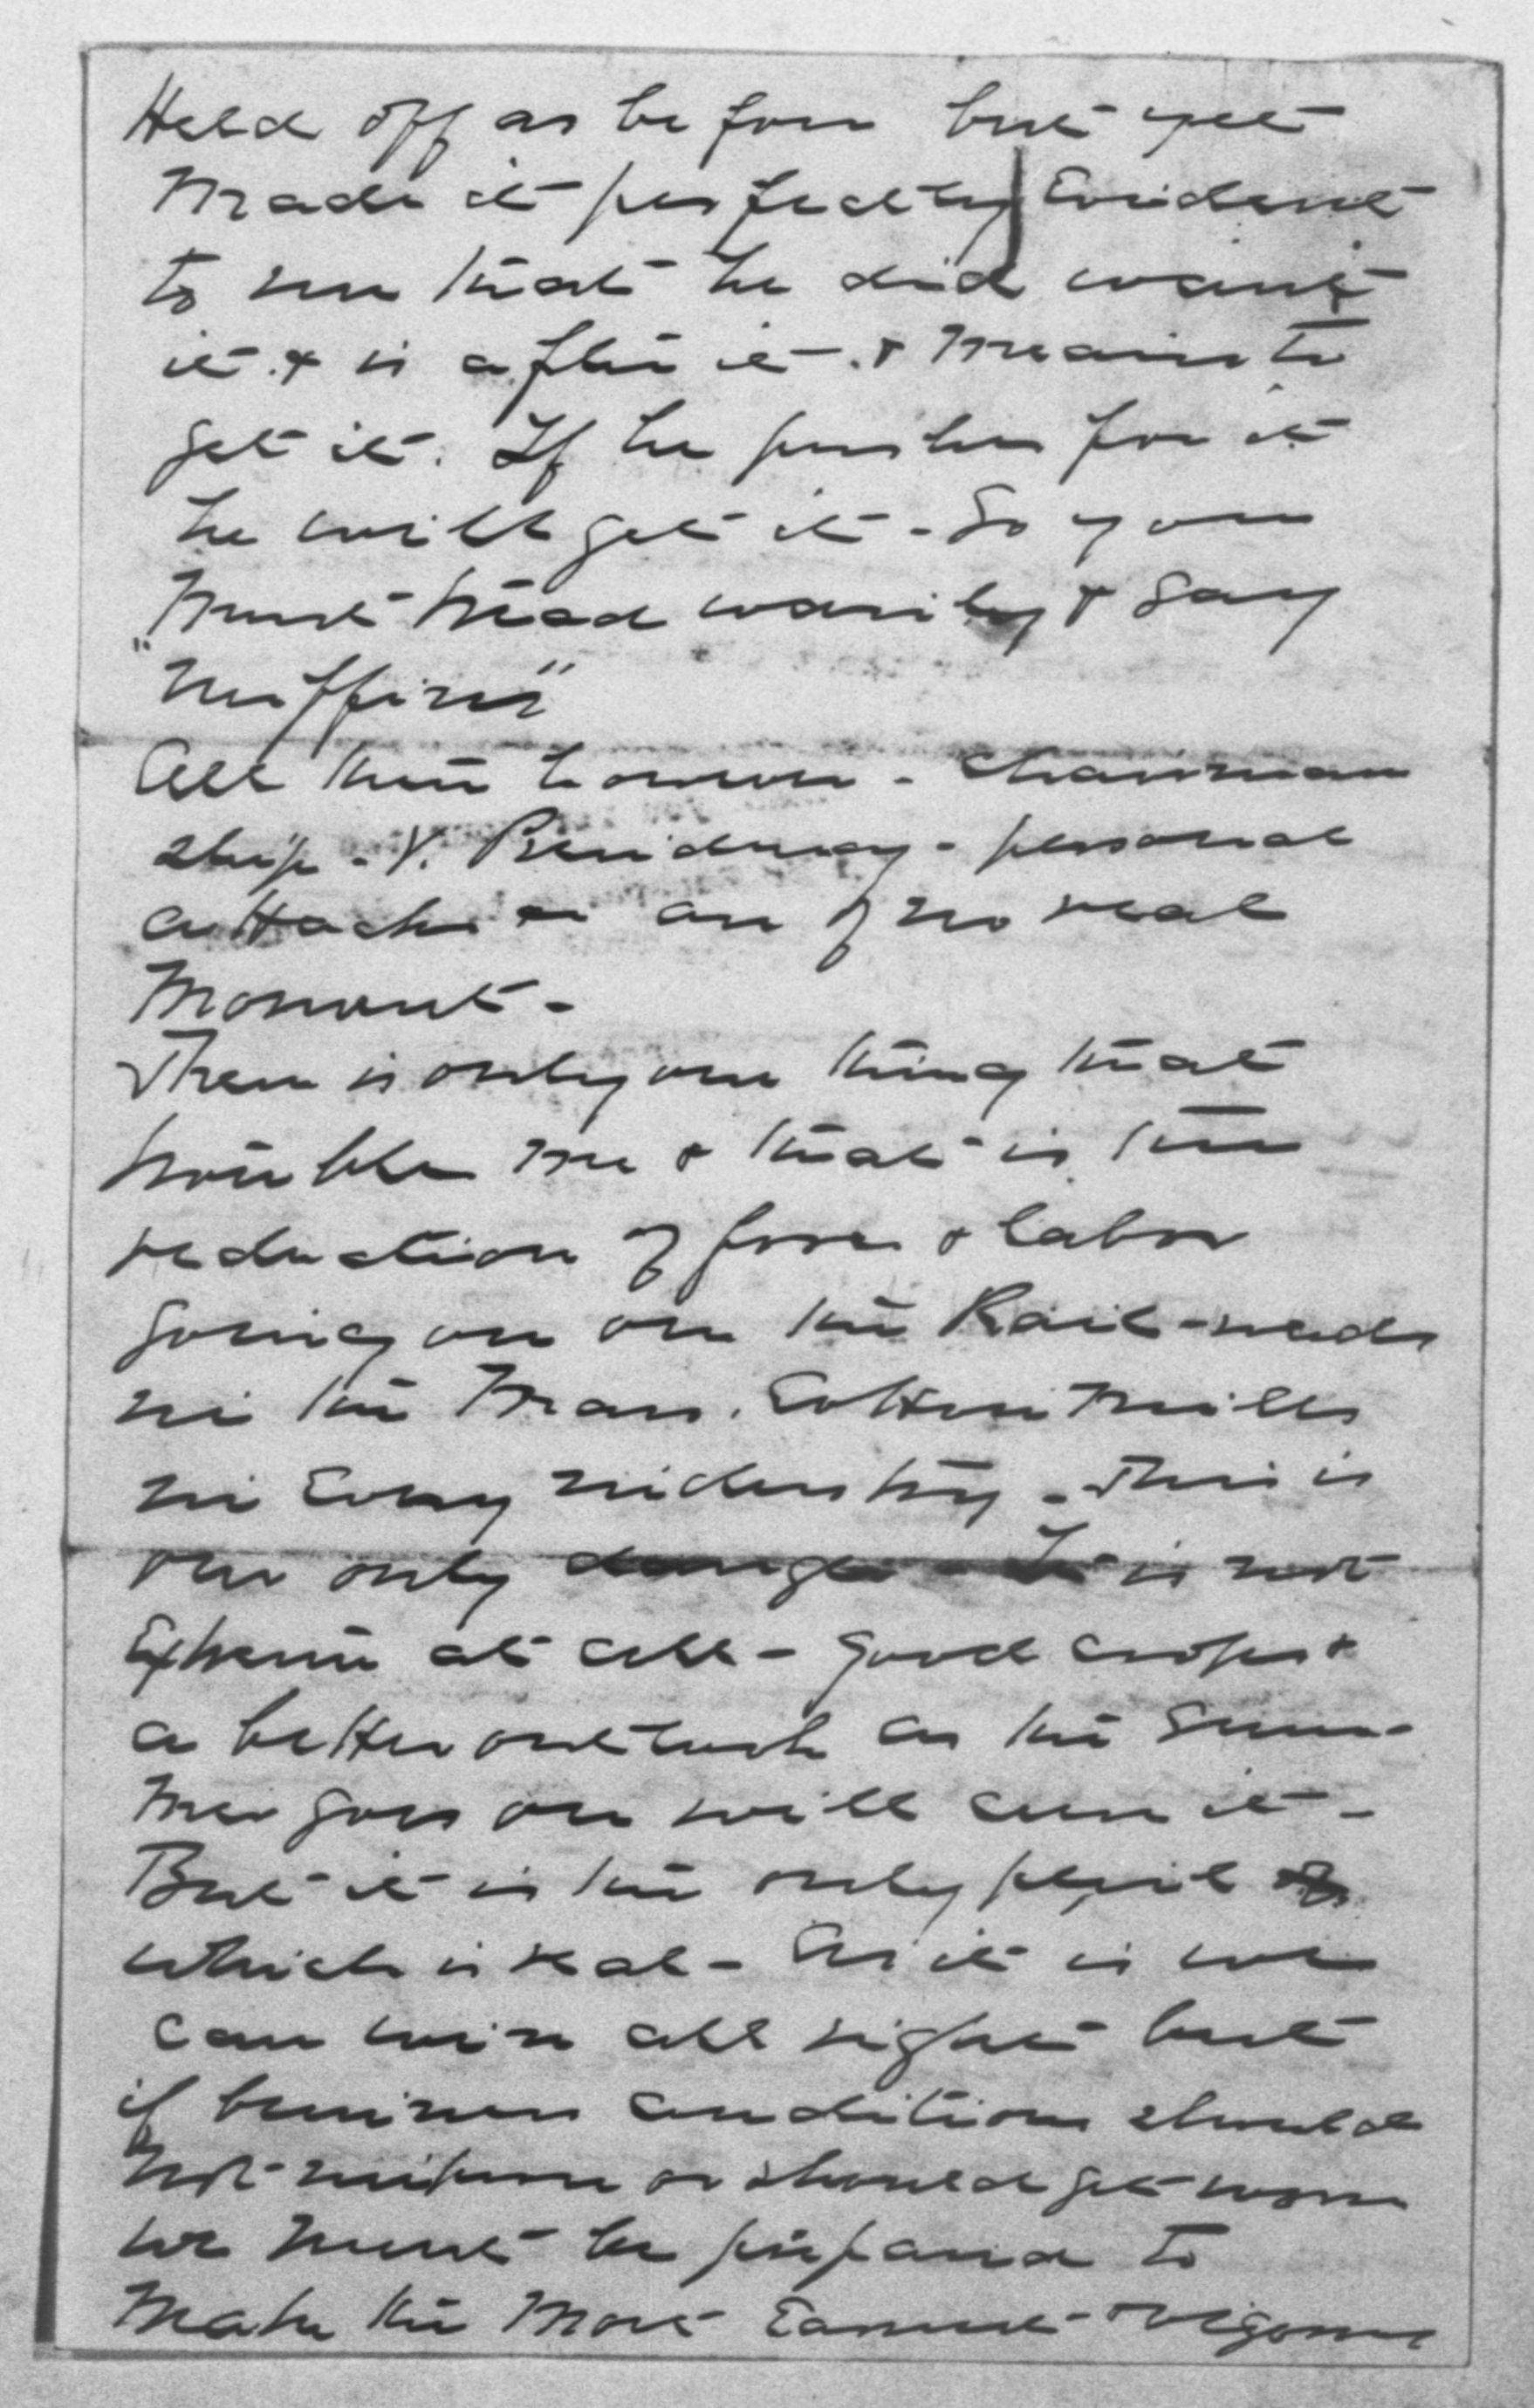 Held off as before but yet
made it perfectly evident
to me that he did want
it & is after it & means to
get it. If he pushes for it
he will get it - So you
must tread warily & say
"nuffin"
All this however - Chairman
ship - V. Presidency - personal
attacks are of no real
moment -
There is only one thing that
troubles me & that is the
reduction of force & labor
going on on the Rail-roads
in the Mass. Cotton Mills
in every industry - This is
our only danger - It is not
extreme at all - good crops &
a better outlook as the sum-
mer goes on will cure it -
But it is the only peril
which is real - As it is we
can win all right but
if business conditions should
not improve or should get worse
we must be prepared to
make the most earnest & vigorous